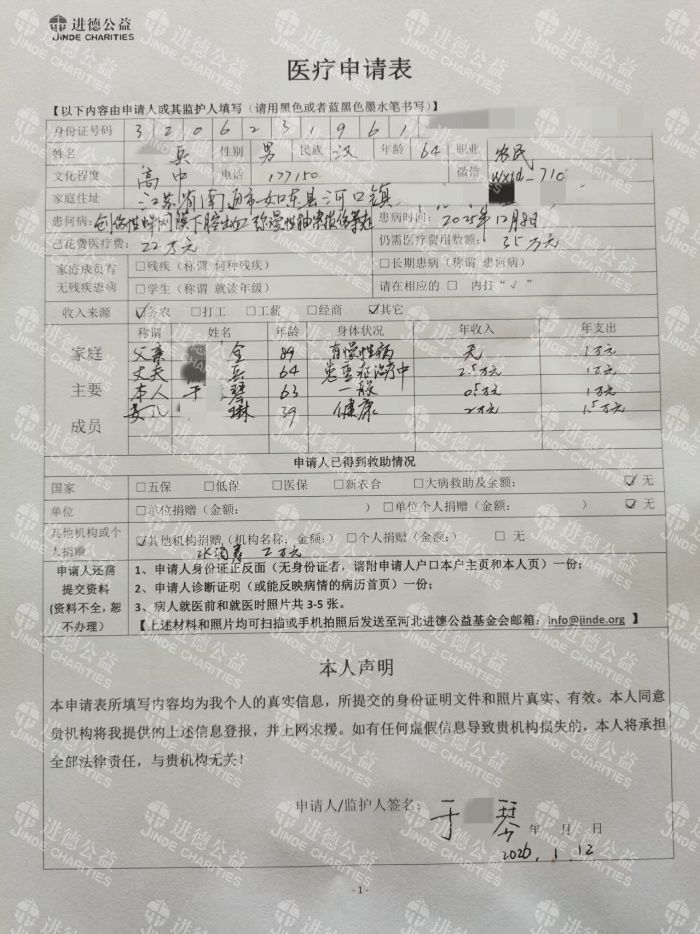 进德公益
JINDE CHARITIES
医疗申请表
【以下内容由申请人或其监护人填写（请用黑色或者蓝黑色墨水笔书写）】
身份证号码 3 2 0 6 2 3 1 9 6 1
姓名 兵 性别 男 民族 汉 年龄 64 职业 农民
文化程度 高中 电话 177150 微信 wxid_710
家庭住址 江苏省南通市如东县河口镇
患何病: 创伤性蛛网膜下腔出血 弥漫性轴索损伤 患病时间: 2025年12月8日
已花费医疗费: 22万元 仍需医疗费用数额: 35万元
家庭成员有无残疾患病 □残疾（称谓 何种残疾） □长期患病（称谓 患何病）
□学生（称谓 就读年级） 请在相应的 □ 内打“√”
收入来源 ☑务农 □打工 □工薪 □经商 ☑其它
家庭主要成员 称谓 姓名 年龄 身体状况 年收入 年支出
父亲 全 89 有慢性病 无 1万元
丈夫 兵 64 患重症治疗中 2.5万元 1万元
本人 于 琴 63 一般 0.5万元 1万元
女儿 琳 39 健康 2万元 1.5万元
申请人已得到救助情况
国家 □五保 □低保 □医保 □新农合 □大病救助及金额: ☑ 无
单位 □单位捐赠（金额: ） □单位个人捐赠（金额: ） ☑ 无
其他机构或个人捐赠 ☑其他机构捐赠（机构名称、金额:） □个人捐赠（金额:） □ 无
水滴筹 2万元
申请人还需提交资料(资料不全，恕不办理)
1、申请人身份证正反面（无身份证者，请附申请人户口本户主页和本人页）一份；
2、申请人诊断证明（或能反映病情的病历首页）一份；
3、病人就医前和就医时照片共 3-5 张。
【上述材料和照片均可扫描或手机拍照后发送至河北进德公益基金会邮箱：info@jinde.org 】
本人声明
本申请表所填写内容均为我个人的真实信息，所提交的身份证明文件和照片真实、有效。本人同意
贵机构将我提供的上述信息登报，并上网求援。如有任何虚假信息导致贵机构损失的，本人将承担
全部法律责任，与贵机构无关！
申请人/监护人签名: 于 琴 年 月 日
2026.1.12
- 1 -